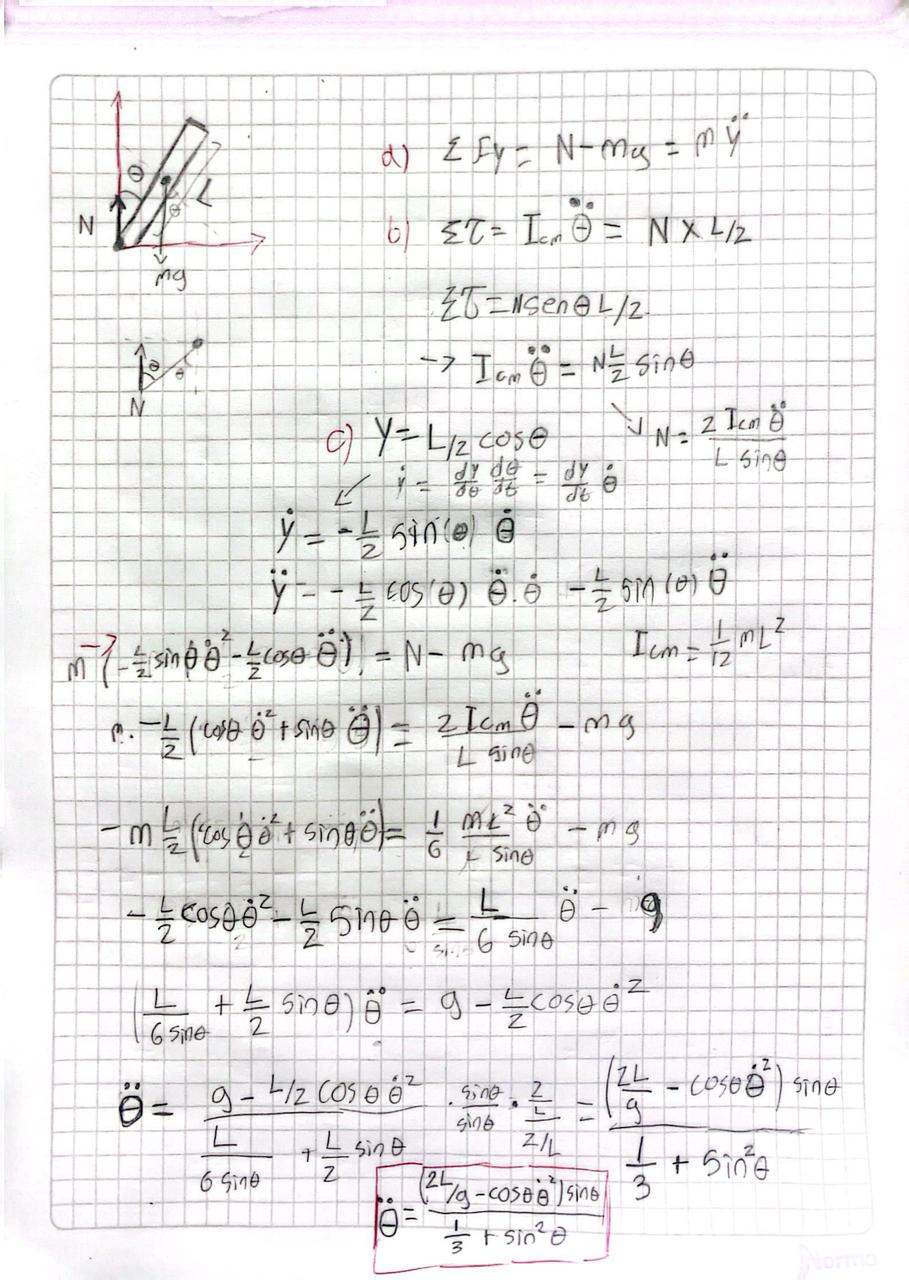 a) Σ Fy = N - mg = m ÿ
b) Στ = I_cm θ̈ = N × L/2
Στ = N sen θ L/2
→ I_cm θ̈ = N L/2 sin θ
↘ N = 2 I_cm θ̈ / (L sin θ)
θ
θ
L
N
mg
θ
θ
N
c) Y = L/2 cos θ
↙ ẏ = dy/dθ dθ/dt = dy/dt θ̇
ẏ = - L/2 sin(θ) θ̇
ÿ = - L/2 cos(θ) θ̇.θ̇ - L/2 sin(θ) θ̈
I_cm = 1/12 mL²
→ m (- L/2 sin θ θ̇² - L/2 cos θ θ̈) = N - mg
m. -L/2 (cos θ θ̇² + sin θ θ̈) = 2 I_cm θ̈ / (L sin θ) - mg
- m L/2 (cos θ θ̇² + sin θ θ̈) = 1/6 mL² θ̈ / (L sin θ) - mg
- L/2 cos θ θ̇² - L/2 sin θ θ̈ = L / (6 sin θ) θ̈ - g
(L / (6 sin θ) + L/2 sin θ) θ̈ = g - L/2 cos θ θ̇²
θ̈ = (g - L/2 cos θ θ̇²) / (L / (6 sin θ) + L/2 sin θ) . sin θ / sin θ . 2 / L / 2/L = (2L/g - cos θ θ̇²) sin θ / (1/3 + sin² θ)
θ̈ = (2L/g - cos θ θ̇²) sin θ / (1/3 + sin² θ)
Norma